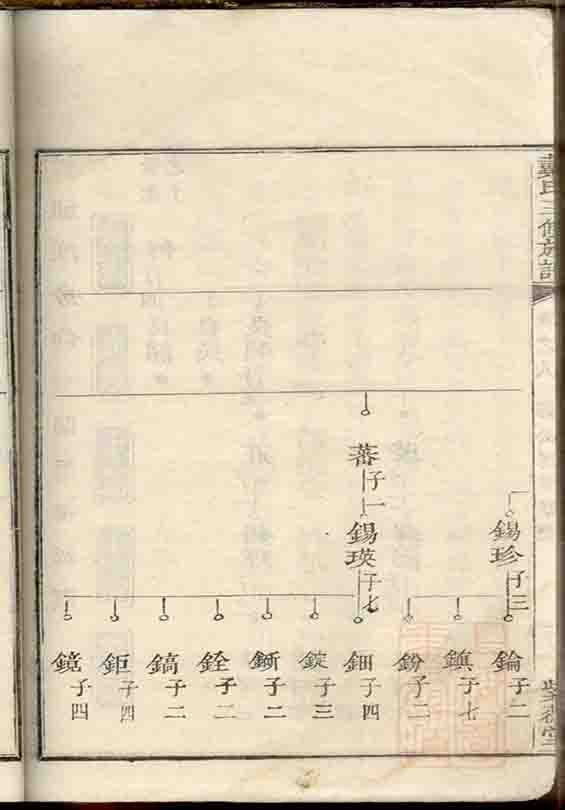 氏三修族譜
錫珍 子三
錀 子二
鎮 子七
鈖 子二
蕃 子一
錫瑛 子七
鈿 子四
錠 子三
銓 子二
鎬 子二
鉅 子四
鏡 子四